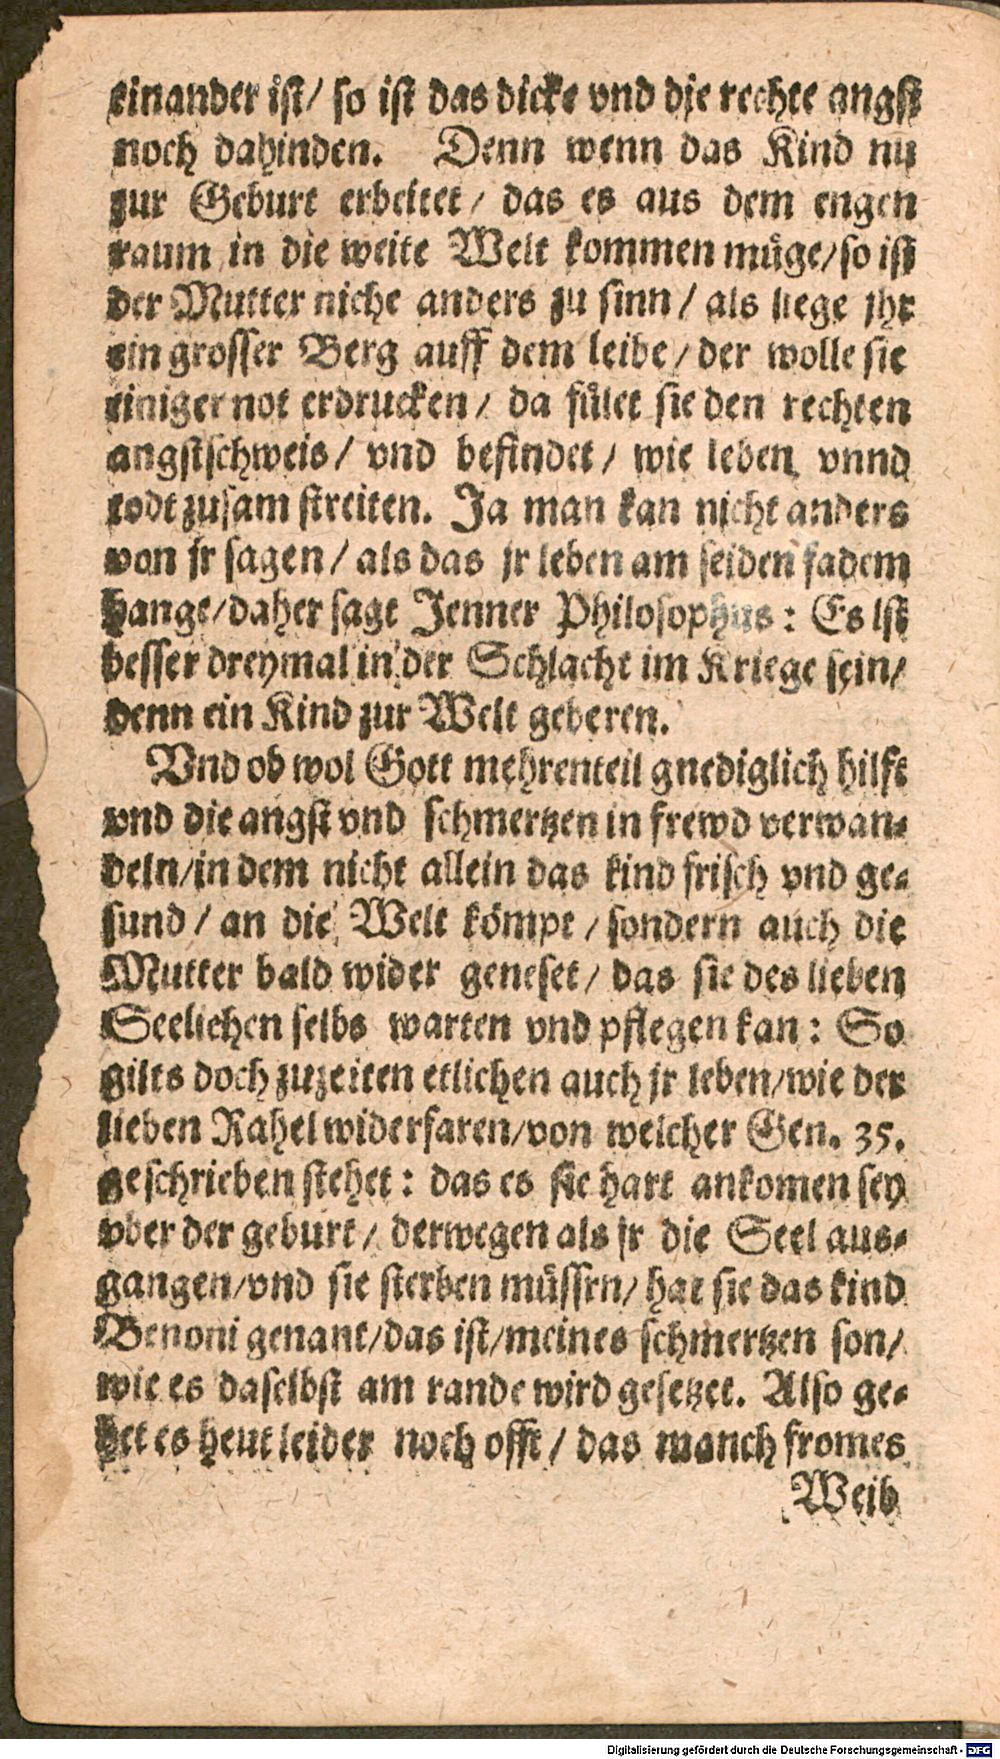 einander ist/ so ist das dicke vnd die rechte angst
noch dahinden. Denn wenn das Kind nu
zur Geburt erbeitet/ das es aus dem engen
raum in die weite Welt kommen müge/so ist
der Mutter nicht anders zu sinn/ als liege jhr
ein grosser Berg auff dem leibe/ der wolle sie
einiger not erdrucken/ da fület sie den rechten
angstschweis/ vnd befindet/ wie leben vnnd
todt zusam streiten. Ja man kan nicht anders
von jr sagen/ als das jr leben am seiden fadem
hange/daher sagt Jenner Philosophus: Es ist
besser dreymal in der Schlacht im Kriege sein/
denn ein Kind zur Welt geberen.
Vnd ob wol Gott mehrenteil gnediglich hilft
vnd die angst vnd schmertzen in frewd verwan-
deln/in dem nicht allein das kind frisch vnd ge-
sund/ an die Welt kömpt/ sondern auch die
Mutter bald wider geneset/ das sie des lieben
Seelichen selbs warten vnd pflegen kan: So
gilts doch zuzeiten etlichen auch jr leben/wie der
lieben Rahel widerfaren/von welcher Gen. 35.
geschrieben stehet: das es sie hart ankomen sey
vber der geburt/ derwegen als jr die Seel aus-
gangen/vnd sie sterben müssen/ hat sie das kind
Benoni genant/das ist/meines schmertzen son/
wie es daselbst am rande wird gesetzet. Also ge-
het es heut leider noch offt/ das manch fromes
Weib
Digitalisierung gefördert durch die Deutsche Forschungsgemeinschaft - DFG